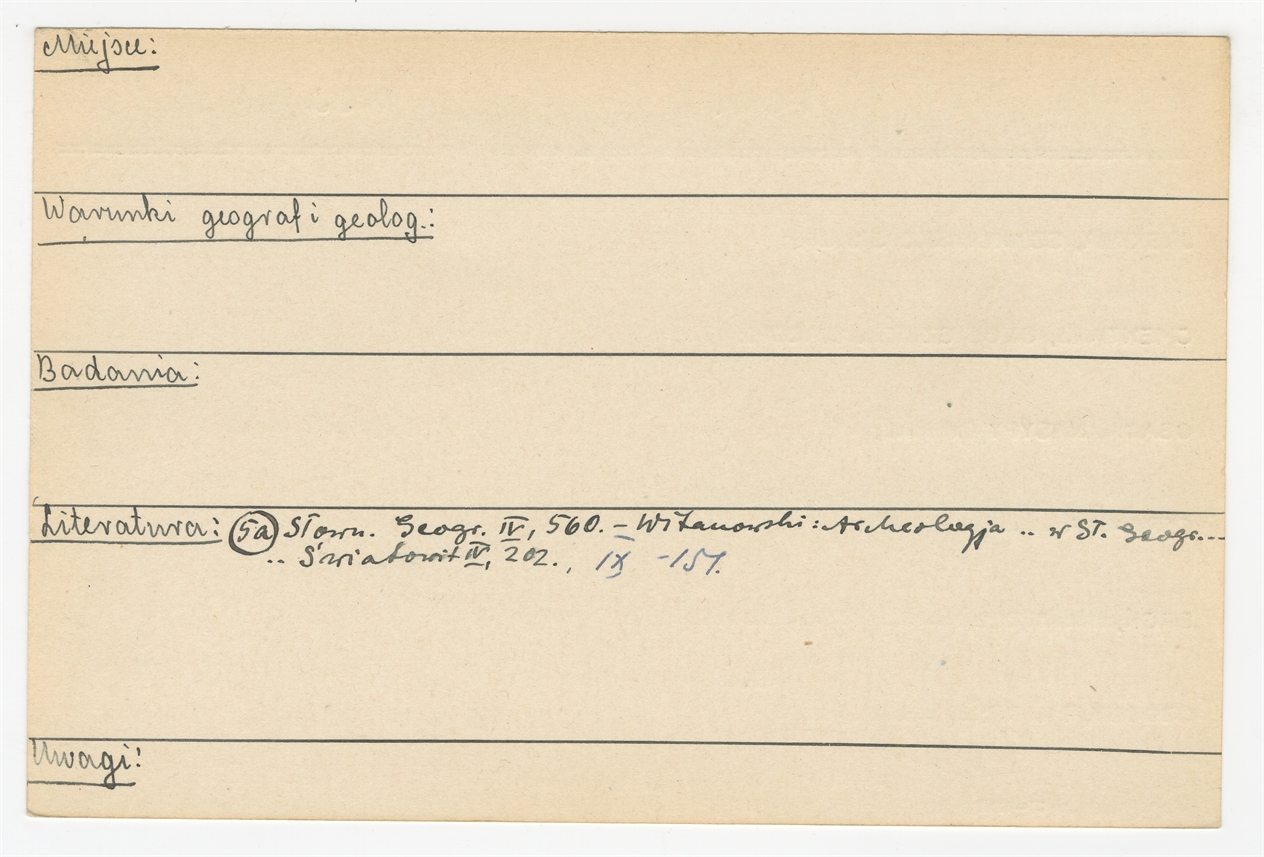 Miejsce:
Warunki geograf i geolog.:
Badania:
Literatura: 5a Słown. Geogr. IV, 560. – Witanowski: Archeologja .. w Sł. Geogr...
.. Światowit IV, 202., IX -151.
Uwagi: